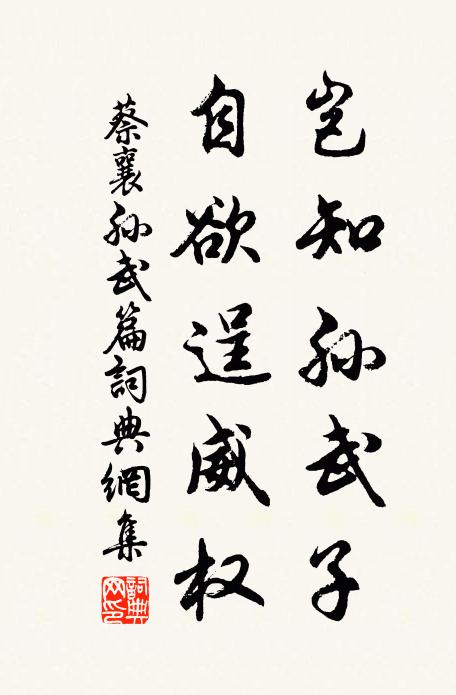 岂知孙武子
自欲逞威权
蔡襄孙武篇詞典網集
詞典网印